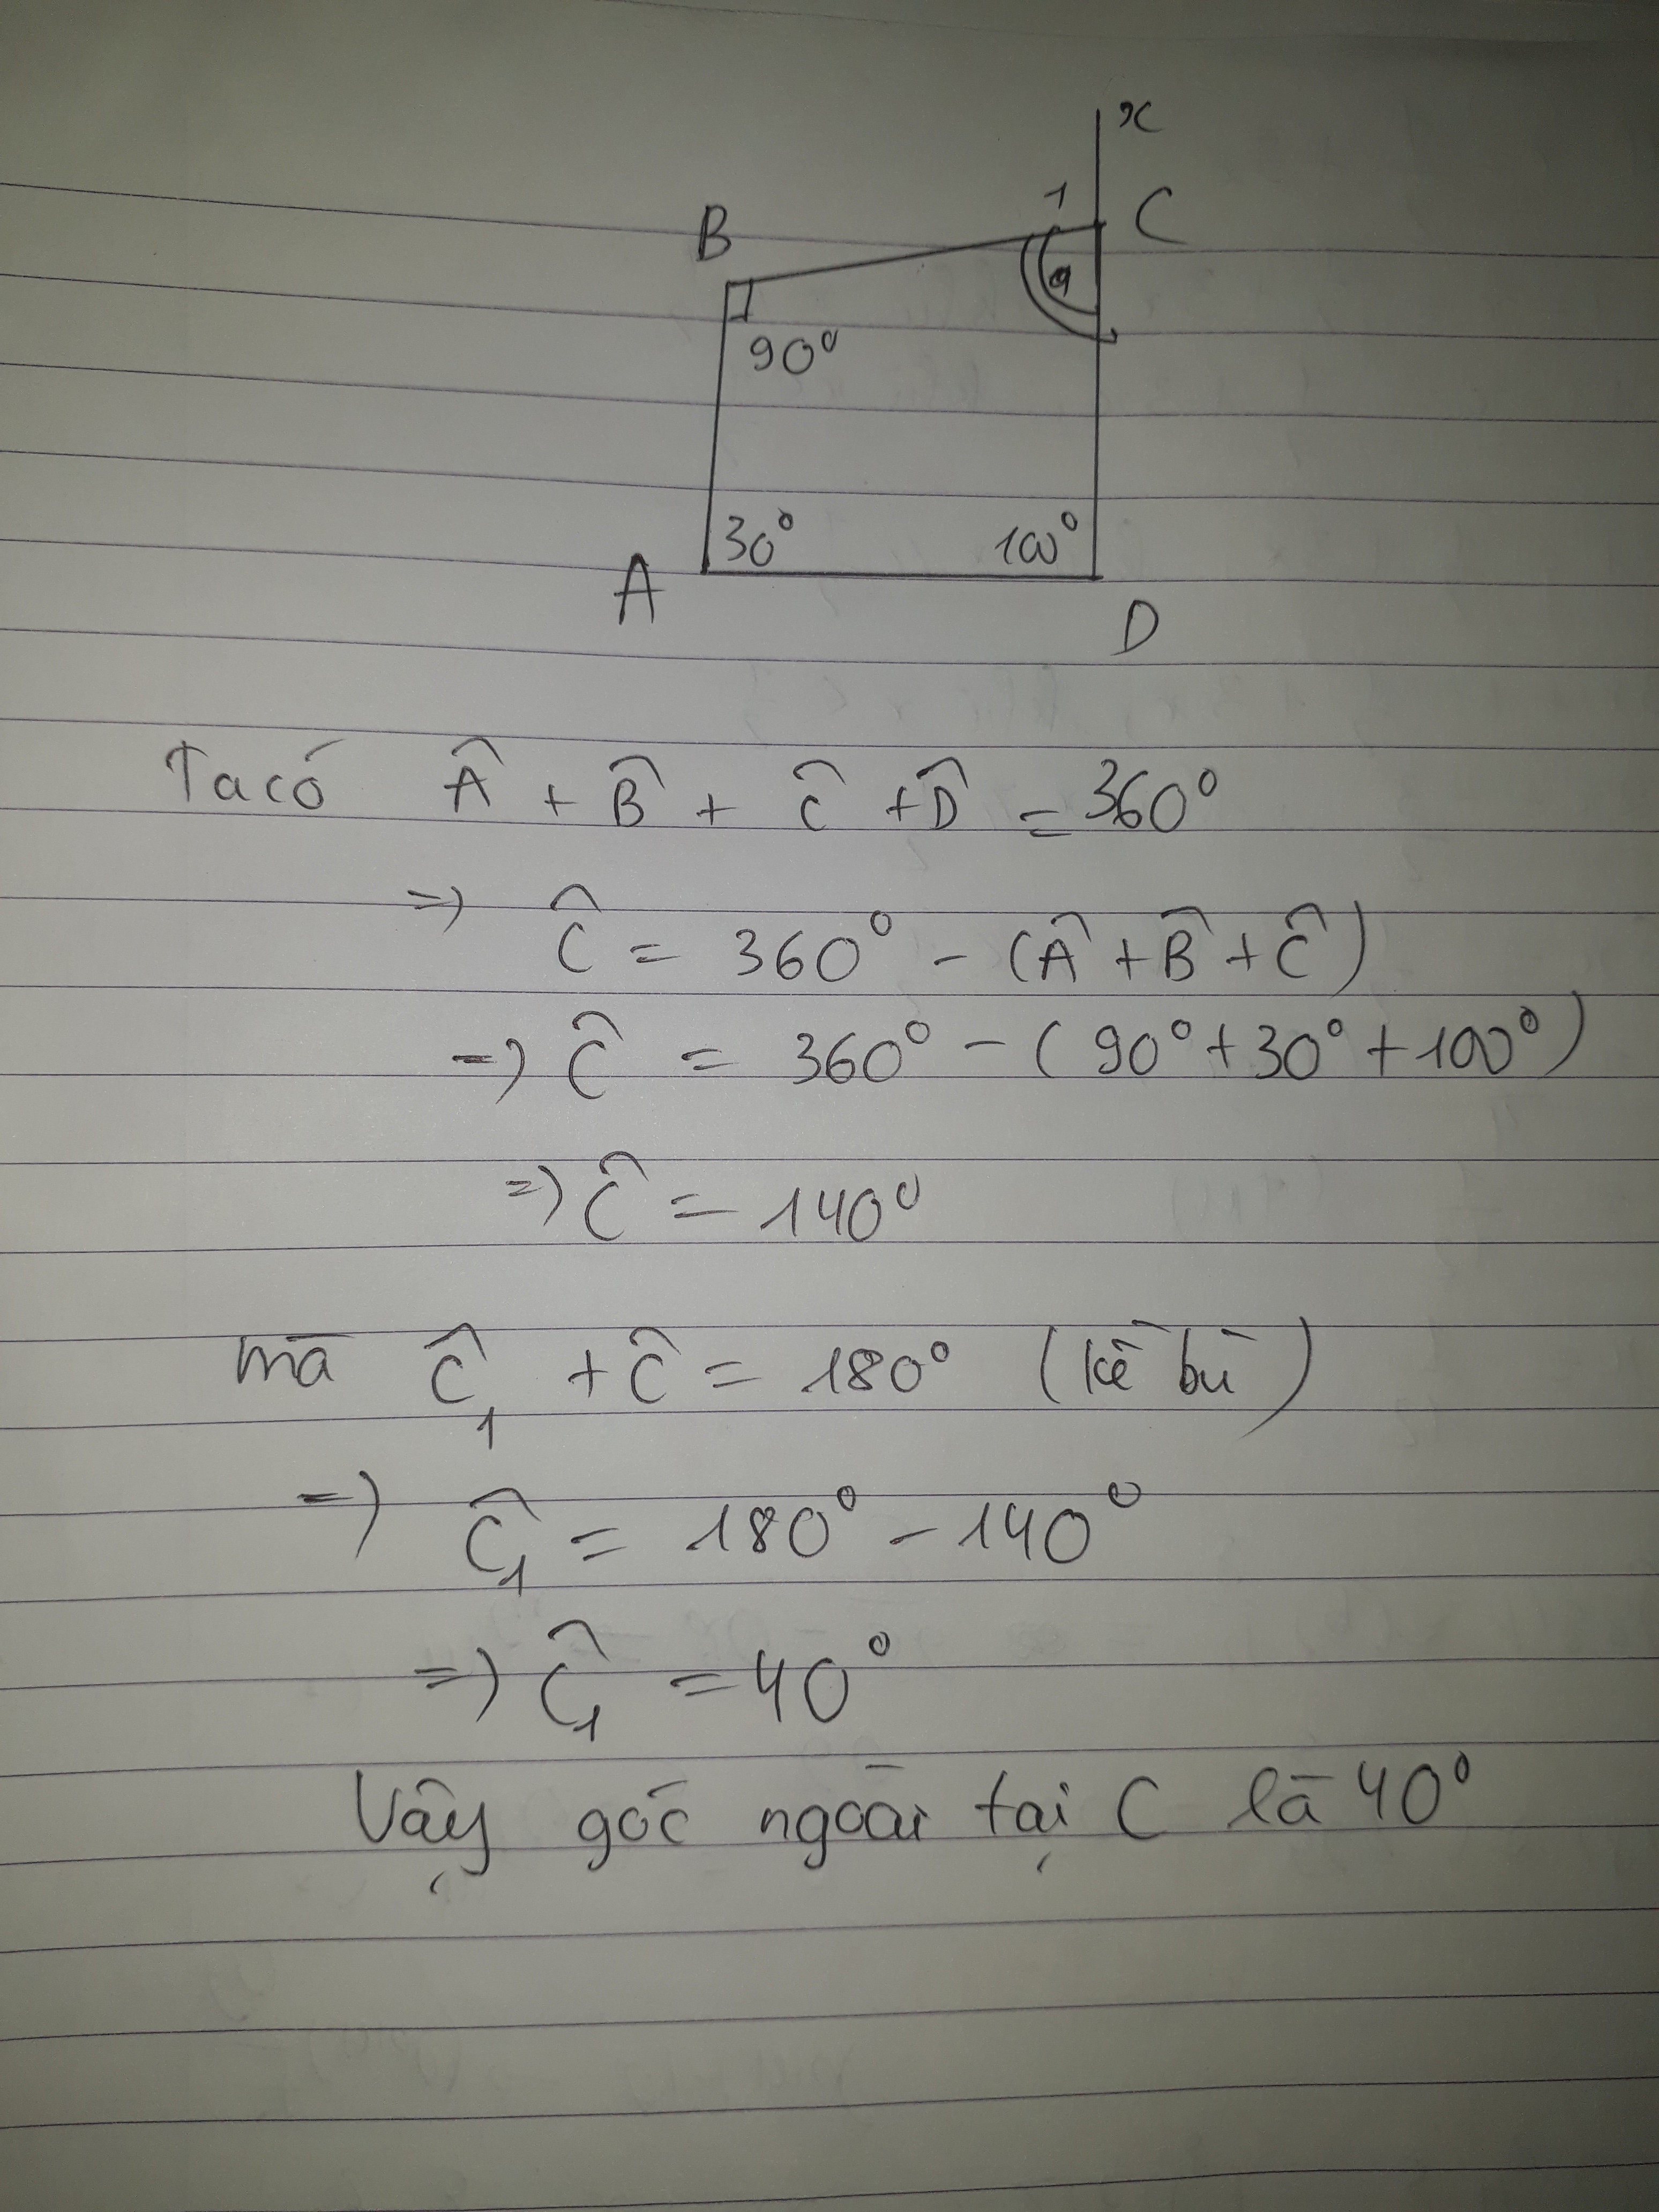 x
1
B C
90°
30° 100°
A
D
Ta có Â + B̂ + Ĉ + D̂ = 360°
=> Ĉ = 360° - (Â + B̂ + Ĉ)
=> Ĉ = 360° - (90° + 30° + 100°)
=> Ĉ = 140°
mà Ĉ₁ + Ĉ = 180° (kề bù)
=> Ĉ₁ = 180° - 140°
=> Ĉ₁ = 40°
Vậy góc ngoài tại C là 40°